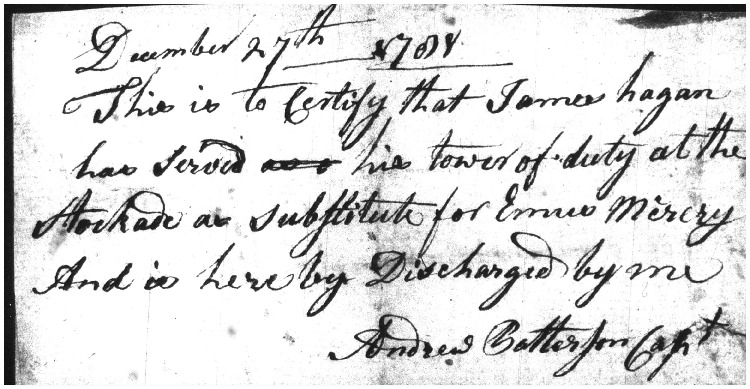 December 27th 1781
This is to Certify that James hagan
has Served his tower of duty at the
Stockade as Substitute for Emus Mercry
And is here by Discharged by me
Andrew Patterson Capt